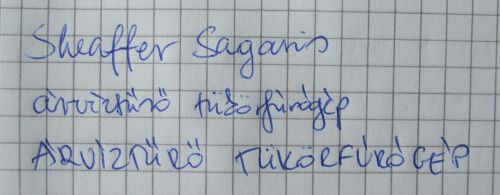 Sheaffer Sagaris
árvíztűrő tükörfúrógép
ÁRVÍZTŰRŐ TÜKÖRFÚRÓGÉP